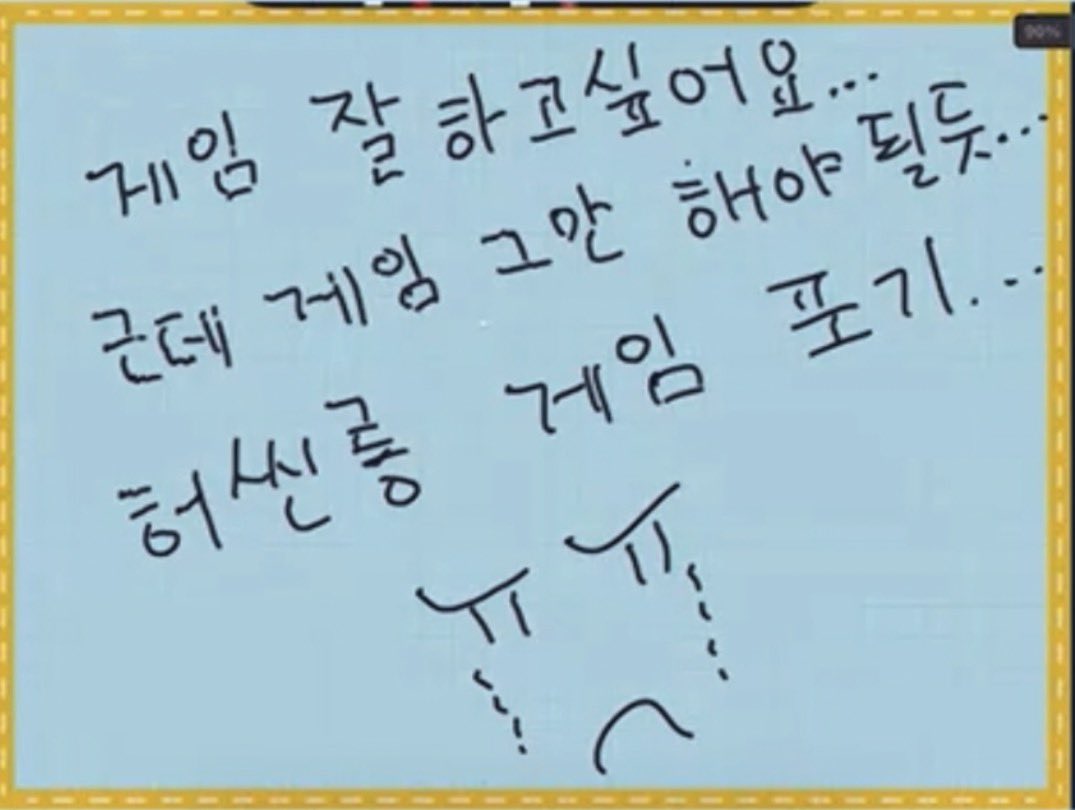 게임 잘하고싶어요...
근데 게임 그만 해야 될듯...
허씬롱 게임 포기...
ㅠㅠ
90%